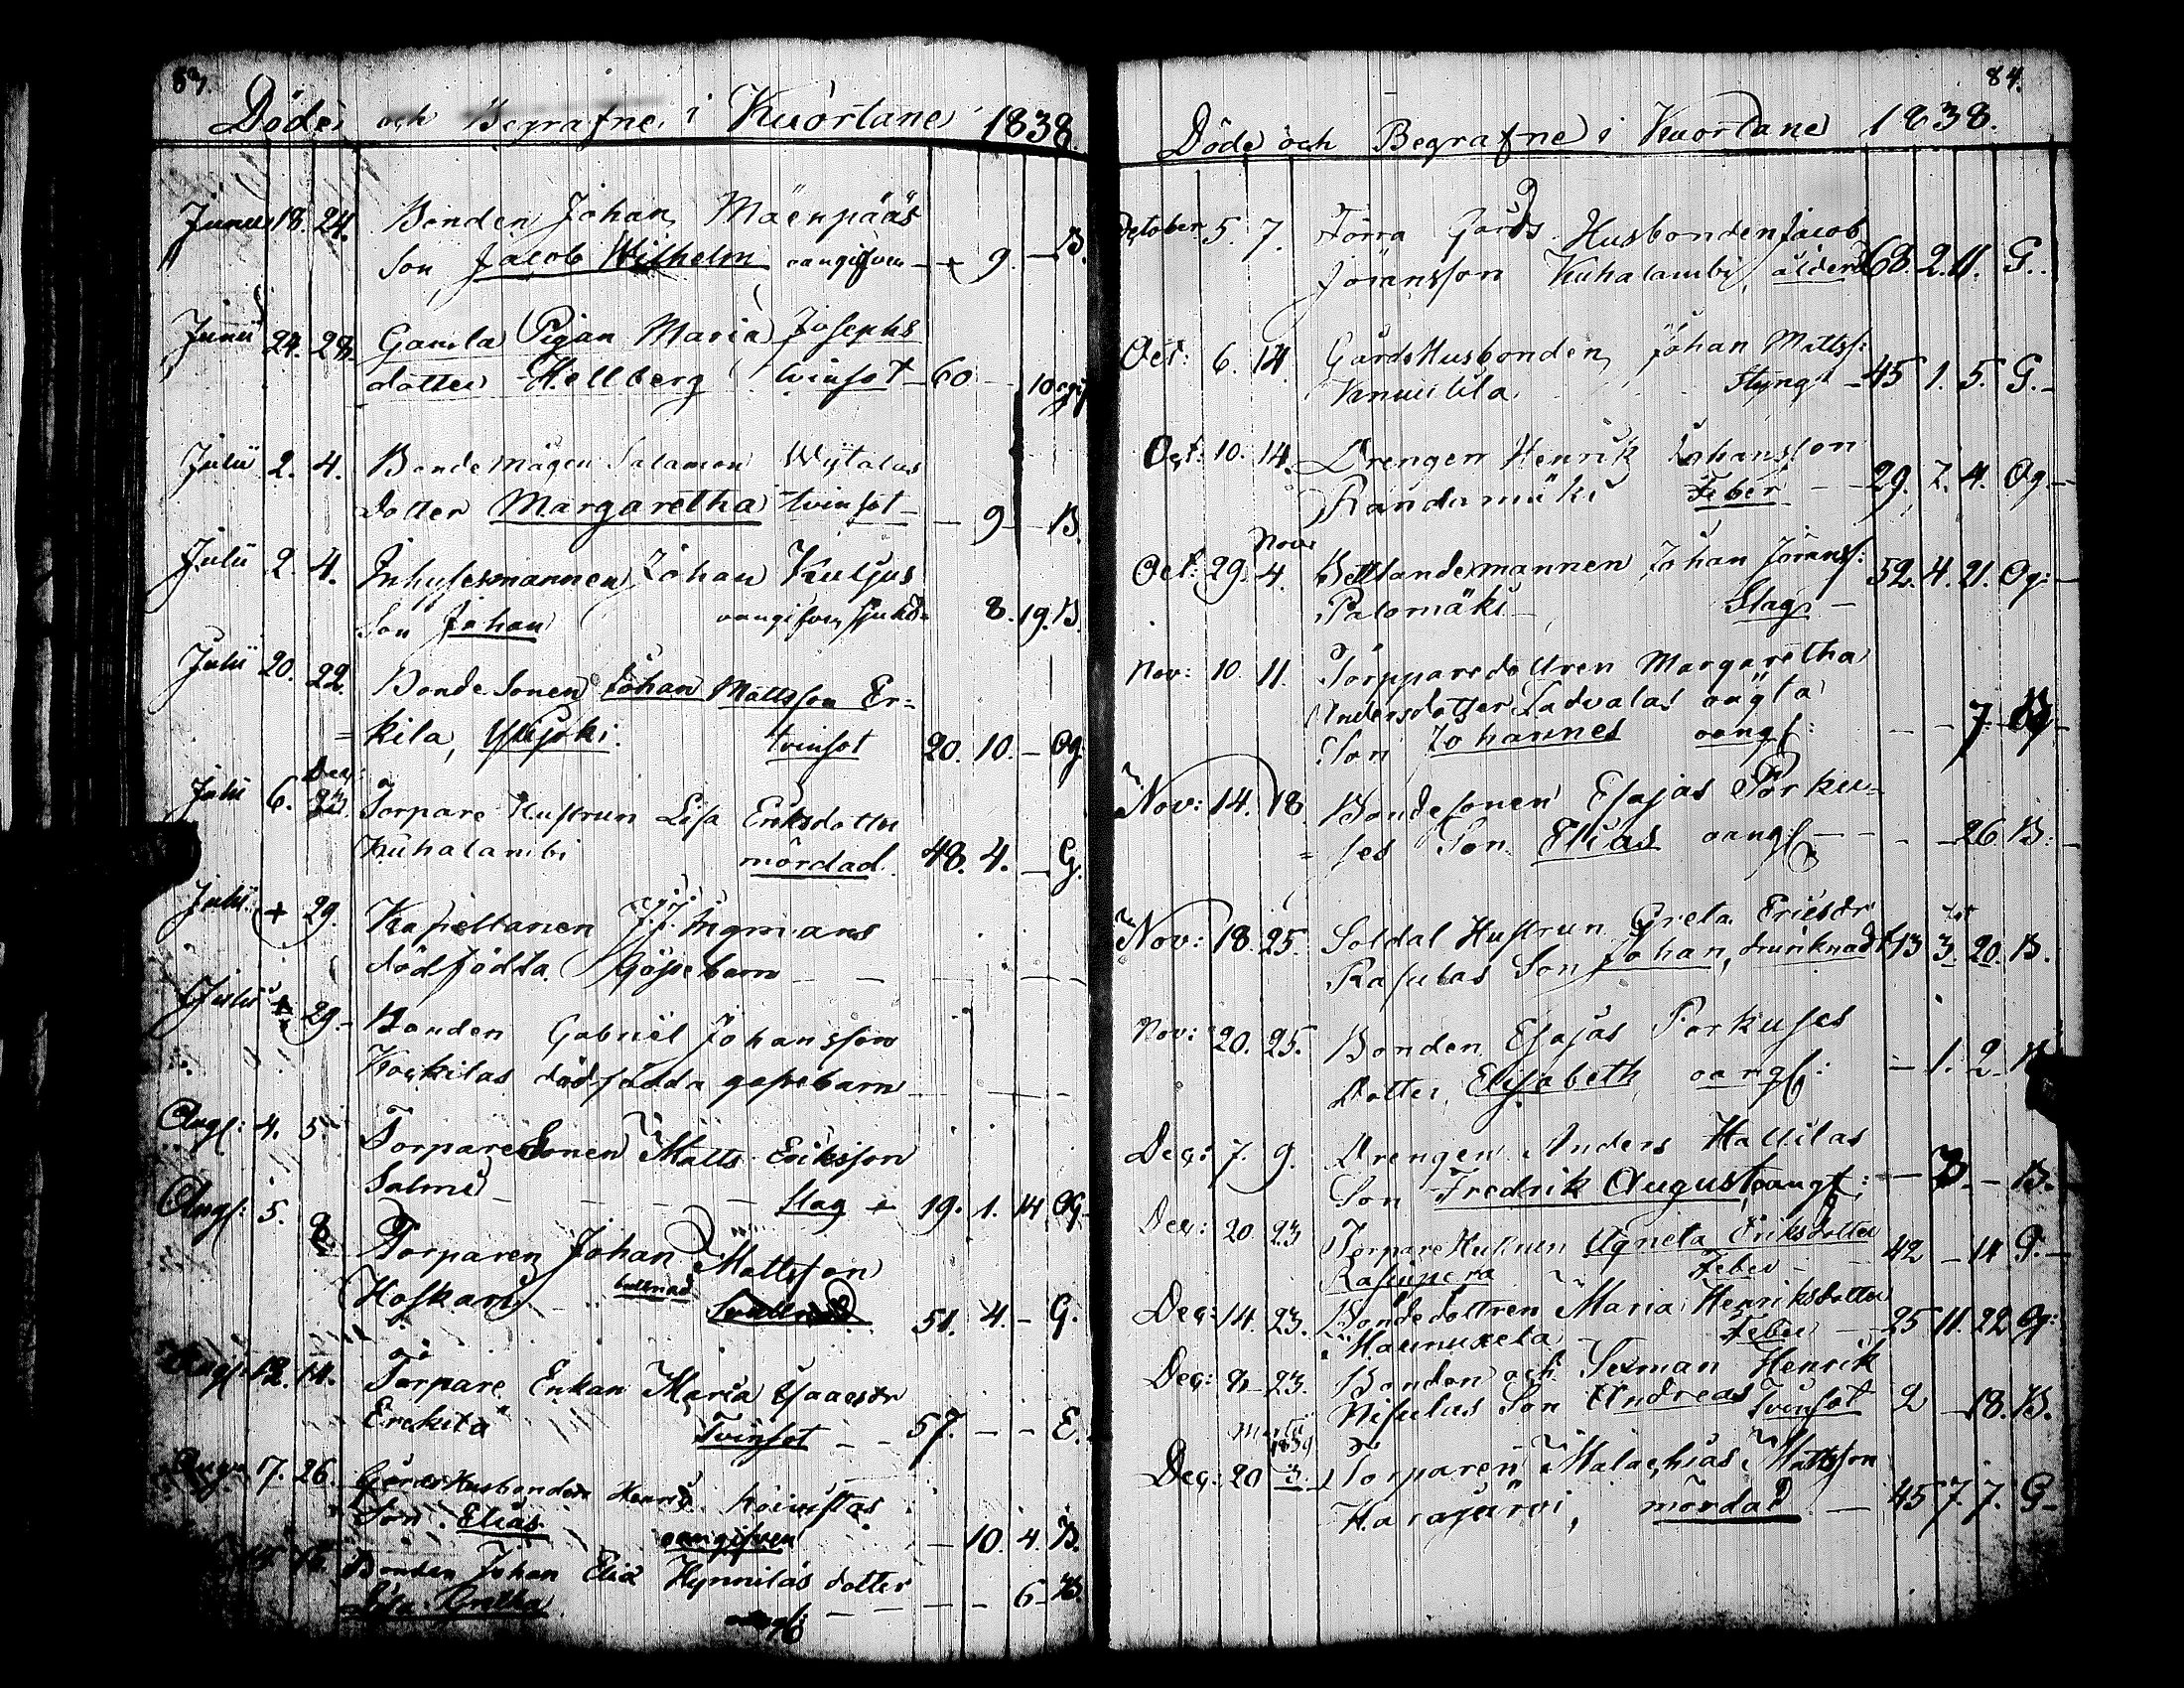 Döde och Begrafne i Kuortane 1838
Junii 18. 24. Bonden Johan Mäenpääs
Son Jacob Wilhelm oangifven - + 9. - B.
Junii 24. 28. Gamla Pigan Maria Josephs
dotter Hellberg tvinsot - 60 - 10 ogif
Julii 2. 4. Bondemågen Salamon Wijtalas
dotter Margaretha tvinsot - - 9 - B.
Julii 2. 4. Inhysesmannen Johan Kuljus
Son Johan oangifven sjukd. 8. 19. B.
Julii 20. 22. Bonde Sonen Johan Mattsson Er=
= kila, Ylijoki. tvinsot 20. 10. - Og.
Dec:
Julii 6. Torpare Hustrun Lisa Eriksdotter
Kuhalambi mördad 48. 4. - G.
Julii + 29. Kapellanen J. J. Ingmans
dödfödda Gåssebarn - - - -
Julii + 29. Bonden Gabriel Johansson
Koskilas dödfödda gossebarn
Aug: 4. 5. Torpare Sonen Matts Eriksson
Salmi - - - Slag + 19. 1. 14 Og.
Aug: 5. 8. Torparen Johan Mattsson
Hoskari 51. 4. - G.
Aug: 12. 14. Torpare Enkan Maria Isaacsdr
Erckilä Tvinsot - - 57. - - E.
17. 26. Gårds Husbonden Henrik
Son Elias oangifven - 10. 4. B.
Bonden Johan Elia Hynnilas dotter
Lisa Gretha oangf: - - - - 6 - B.
84.
Döde och Begrafne i Kuortane 1838.
October 5. 7. Förra Gårds Husbonden Jacob
Jöransson Kuhalambi, ålderd 68. 2. 11. G.
Oct: 6. 14. GårdsHusbonden Johan Mattss:
Knuutila Styng - 45 1. 5. G. -
Oct: 10. 14. Drengen Henrik Johansson
Randamäki Feber - - 29. 7. 4. Og. -
Nov:
Oct: 29. 4. Johan Jöranss: 52. 4. 21. Og: -
Palomäki - Slag -
Nov: 10. 11. Torpparedottren Margaretha
Andersdotter Ladvalas oägta
Son Johannes oangf: - - 7. B.
Nov: 14. 18. Bondesonen Esajas Porku=
= ses Son Elias oangf - - - - 26 B:
Nov: 18. 25. Soldat Hustrun Greta Ericsdr
Rasulas Son Johan, drunknadt 13 3. 20. B.
Nov: 20. 25. Bonden Esajas Porkuses
Dotter Elisabeth oangf: - 1. 2.
Dec: 7. 9. Drengen Anders Hallilas
Son Fredrik August oangf: - 3. - B.
Dec: 20 23 Torpare Hustrun Agneta Eriksdotter 42 - 14 G. -
Rasinpera Feber - -
Dec: 14. 23. Bondedottren Maria Henriksdotter
Hannuxela - Feber - 25 11. 22 Og:
Dec: 23. Bonden och Sexman Henrik
Nisulas Son Andreas Tvinsot 2 - 18. B.
Martii 1839
Dec: 20 3. Torparen Malachias Mattsson
Harajärvi, mördad - 45 7. 7. G -